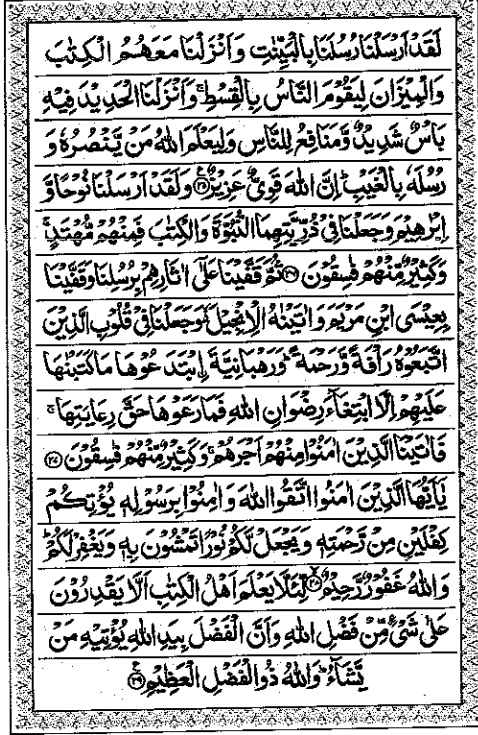 لَقَدۡ اَرۡسَلۡنَا رُسُلَنَا بِالۡبَیِّنٰتِ وَ اَنۡزَلۡنَا مَعَهُمُ الۡكِتٰبَ
وَالۡمِیۡزَانَ لِیَقُوۡمَ النَّاسُ بِالۡقِسۡطِ ۚ وَاَنۡزَلۡنَا الۡحَدِیۡدَ فِیۡهِ
بَاۡسٌ شَدِیۡدٌ وَّمَنَافِعُ لِلنَّاسِ وَلِیَعۡلَمَ اللّٰهُ مَنۡ یَّنۡصُرُهٗ وَ
رُسُلَهٗ بِالۡغَیۡبِ ؕ اِنَّ اللّٰهَ قَوِیٌّ عَزِیۡزٌ ﴿۲۵﴾ وَلَقَدۡ اَرۡسَلۡنَا نُوۡحًا وَّ
اِبۡرٰهِیۡمَ وَجَعَلۡنَا فِیۡ ذُرِّیَّتِهِمَا النُّبُوَّةَ وَالۡكِتٰبَ فَمِنۡهُمۡ مُّهۡتَدٍ ۚ
وَكَثِیۡرٌ مِّنۡهُمۡ فٰسِقُوۡنَ ﴿۲۶﴾ ثُمَّ قَفَّیۡنَا عَلٰۤی اٰثَارِهِمۡ بِرُسُلِنَا وَقَفَّیۡنَا
بِعِیۡسَی ابۡنِ مَرۡیَمَ وَاٰتَیۡنٰهُ الۡاِنۡجِیۡلَ ۬ۙ وَجَعَلۡنَا فِیۡ قُلُوۡبِ الَّذِیۡنَ
اتَّبَعُوۡهُ رَاۡفَةً وَّرَحۡمَةً ؕ وَرَهۡبَانِیَّةَ  ۨابۡتَدَعُوۡهَا مَا كَتَبۡنٰهَا
عَلَیۡهِمۡ اِلَّا ابۡتِغَآءَ رِضۡوَانِ اللّٰهِ فَمَا رَعَوۡهَا حَقَّ رِعَایَتِهَا ۚ
فَاٰتَیۡنَا الَّذِیۡنَ اٰمَنُوۡا مِنۡهُمۡ اَجۡرَهُمۡ ۚ وَكَثِیۡرٌ مِّنۡهُمۡ فٰسِقُوۡنَ ﴿۲۷﴾
یٰۤاَیُّهَا الَّذِیۡنَ اٰمَنُوا اتَّقُوا اللّٰهَ وَ اٰمِنُوۡا بِرَسُوۡلِهٖ یُؤۡتِكُمۡ
كِفۡلَیۡنِ مِنۡ رَّحۡمَتِهٖ وَیَجۡعَلۡ لَّكُمۡ نُوۡرًا تَمۡشُوۡنَ بِهٖ وَیَغۡفِرۡ لَكُمۡ ؕ
وَاللّٰهُ غَفُوۡرٌ رَّحِیۡمٌ ﴿۲۸﴾ لِّئَلَّا یَعۡلَمَ اَهۡلُ الۡكِتٰبِ اَلَّا یَقۡدِرُوۡنَ
عَلٰی شَیۡءٍ مِّنۡ فَضۡلِ اللّٰهِ وَاَنَّ الۡفَضۡلَ بِیَدِ اللّٰهِ یُؤۡتِیۡهِ مَنۡ
یَّشَآءُ ؕ وَاللّٰهُ ذُو الۡفَضۡلِ الۡعَظِیۡمِ ﴿۲۹﴾